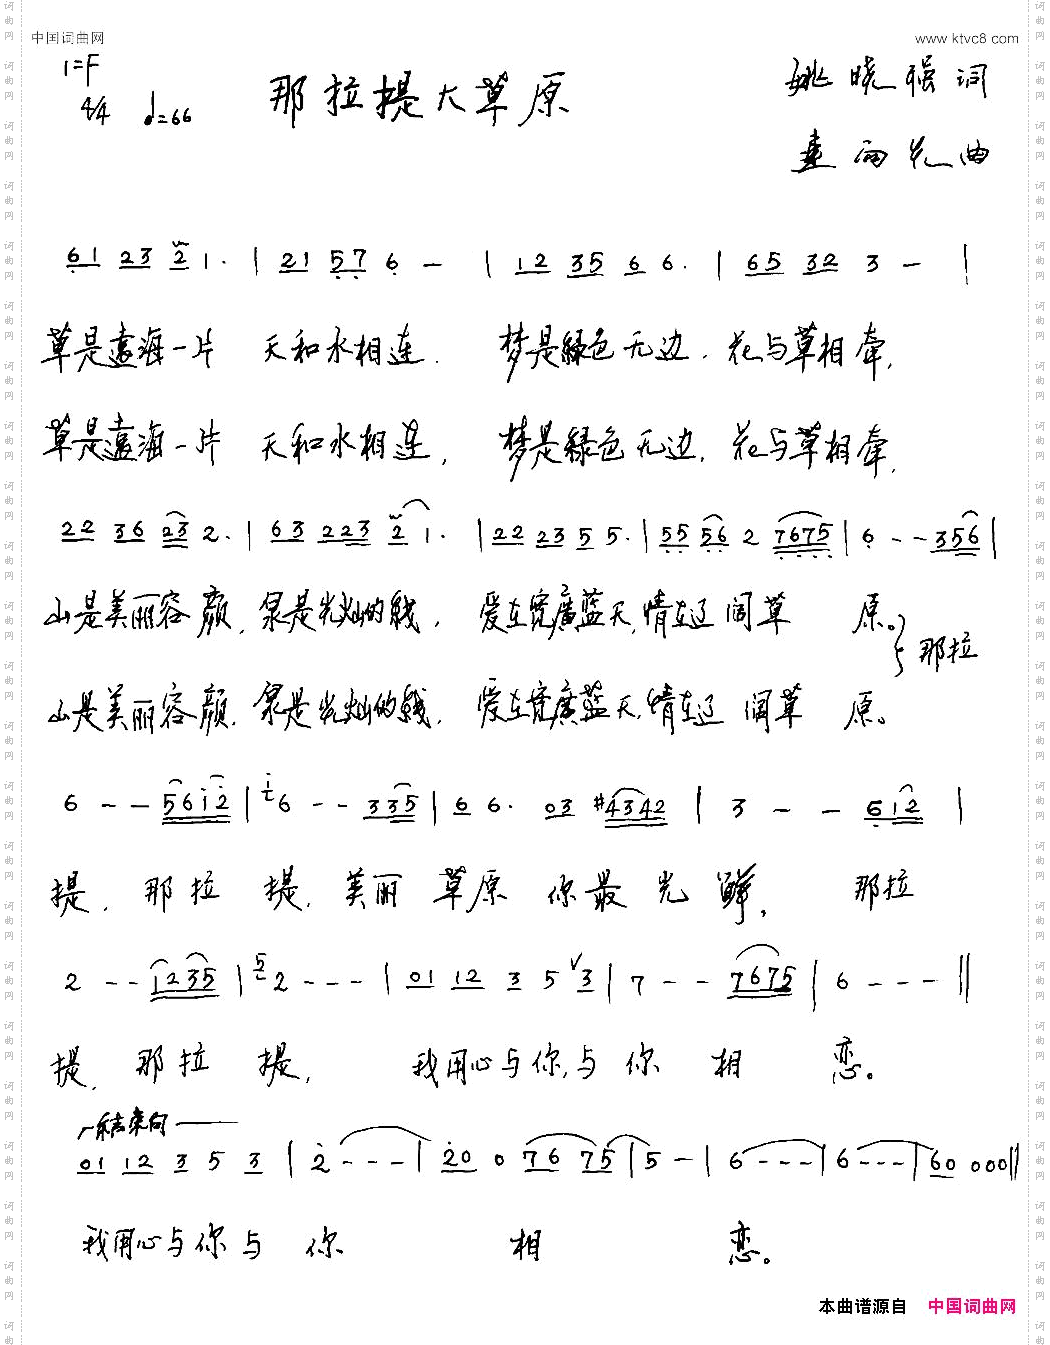 中国词曲网
www.ktvc8.com
1=F
4/4 ♩=66
那拉提大草原
姚晓强词
曲
61 23 2 1. | 21 57 6 - | 12 35 6 6. | 65 32 3 - |
草是遠海一片 天和水相连. 梦是綠色无边.花与草相牵,
草是遠海一片 天和水相连, 梦是綠色无边.花与草相牵,
22 36 23 2. | 63 223 2 1. | 22 23 5 5. | 55 56 2 7675 | 6 - - 356 |
山是美丽容颜,泉是光灿的线. 爱在宽廣蓝天,情在辽阔草原。} 那拉
山是美丽容颜,泉是光灿的线. 爱在宽廣蓝天,情在辽阔草原。
6 - - 5612 | i6 - - 335 | 6 6. 03 #4342 | 3 - - 612 |
提, 那拉提, 美丽草原你最光鲜, 那拉
2 - - 1235 | 5 2 - - - | 01 12 3 5 ∨ 3 | 7 - - 7675 | 6 - - - ||
提, 那拉提, 我用心与你,与你相恋。
结束句
01 12 3 5 3 | 2 - - - | 20 0 76 75 | 5 - | 6 - - - | 6 - - - | 60 000 ||
我用心与你与你相恋。
本曲谱源自 中国词曲网